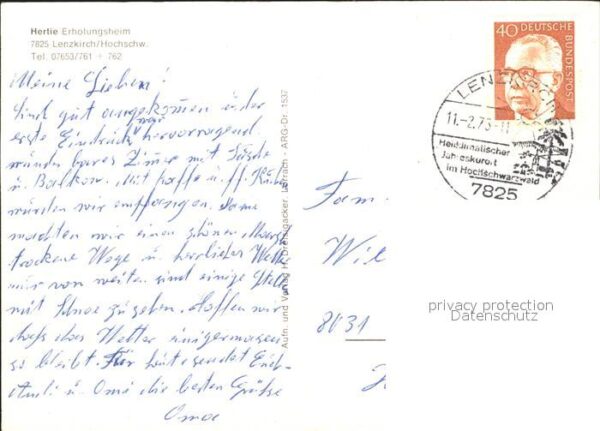 Hertie Erholungsheim
7825 Lenzkirch/Hochschw.
Tel. 07653/761 + 762
Meine Lieben!
Sind gut angekommen in der
erste Eindruck war hervorragend
wunderbares Zimer mit Dusche
u. Balkon. Mit Kaffe u.
würden wir empfangen. Dann
machten wir einen schönen
trockene Wege u. herrliches
nur von weiten sind einige
mit Schne zu sehen. Hoffen wir
das das Wetter einigermasen
so bleibt. Für heute sendet Euch
u. Oma die besten Grüße
Oma
Aufn. und Verlag H. Lörrach - ARG-Dr. 1537
40 DEUTSCHE BUNDESPOST
LENZKIRCH
11.-2.73-11
Heilklimatischer
Jahreskurort
im Hochschwarzwald
7825
Fam.
Wil
8031
privacy protection
Datenschutz